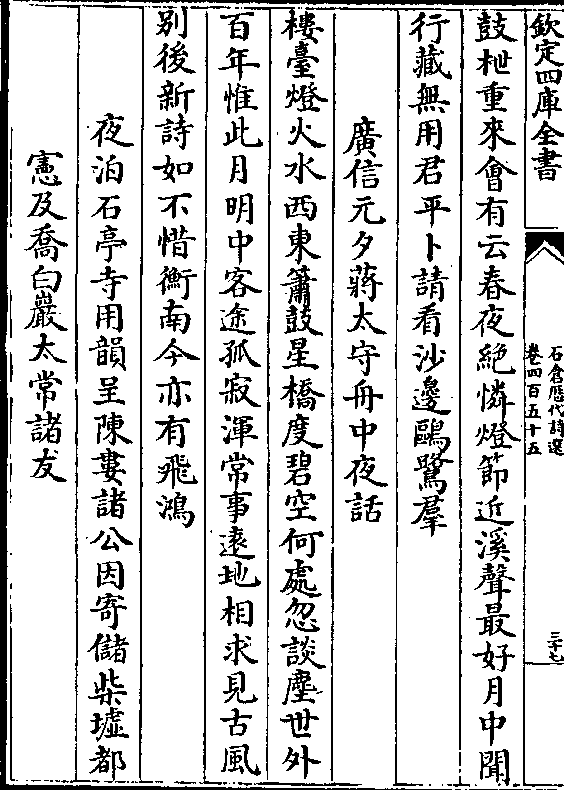 欽定四庫全書
石倉歷代詩選
卷四百五十五
三十七
鼓枻重來會有云春夜絶憐燈節近溪聲最好月中聞
行藏無用君平卜請看沙邊鷗鷺羣
廣信元夕蔣太守舟中夜話
樓臺燈火水西東簫鼓星橋度碧空何處忽談塵世外
百年惟此月明中客途孤寂渾常事逺地相求見古風
别後新詩如不惜衡南今亦有飛鴻
夜泊石亭寺用韻呈陳婁諸公因寄儲柴墟都
憲及喬白巖太常諸友